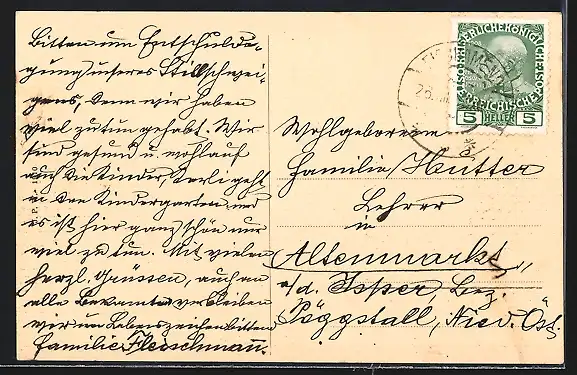 Bitten um Entschuldi-
gung unseres Stillschwei-
gens, denn wir haben
viel zu tun gehabt. Wir
sind gesund u. wohlauf
auch die Kinder, Karli geht
in den Kindergarten, und
es ist hier ganz schön nur
viel zu tun. Mit vielen
herzl. Grüssen, auch an
alle Bekannte verbleiben
wir um Lebenszeichen bittend
Familie Fleischmann.
KAISERLICHE KÖNIGLICHE ÖSTERREICHISCHE POST
5 HELLER 5
Wohlgeboren
Familie Hutter
Lehrer
in
Altenmarkt
a/d. Isper, Bez.
Pöggstall, Nied. Öst.